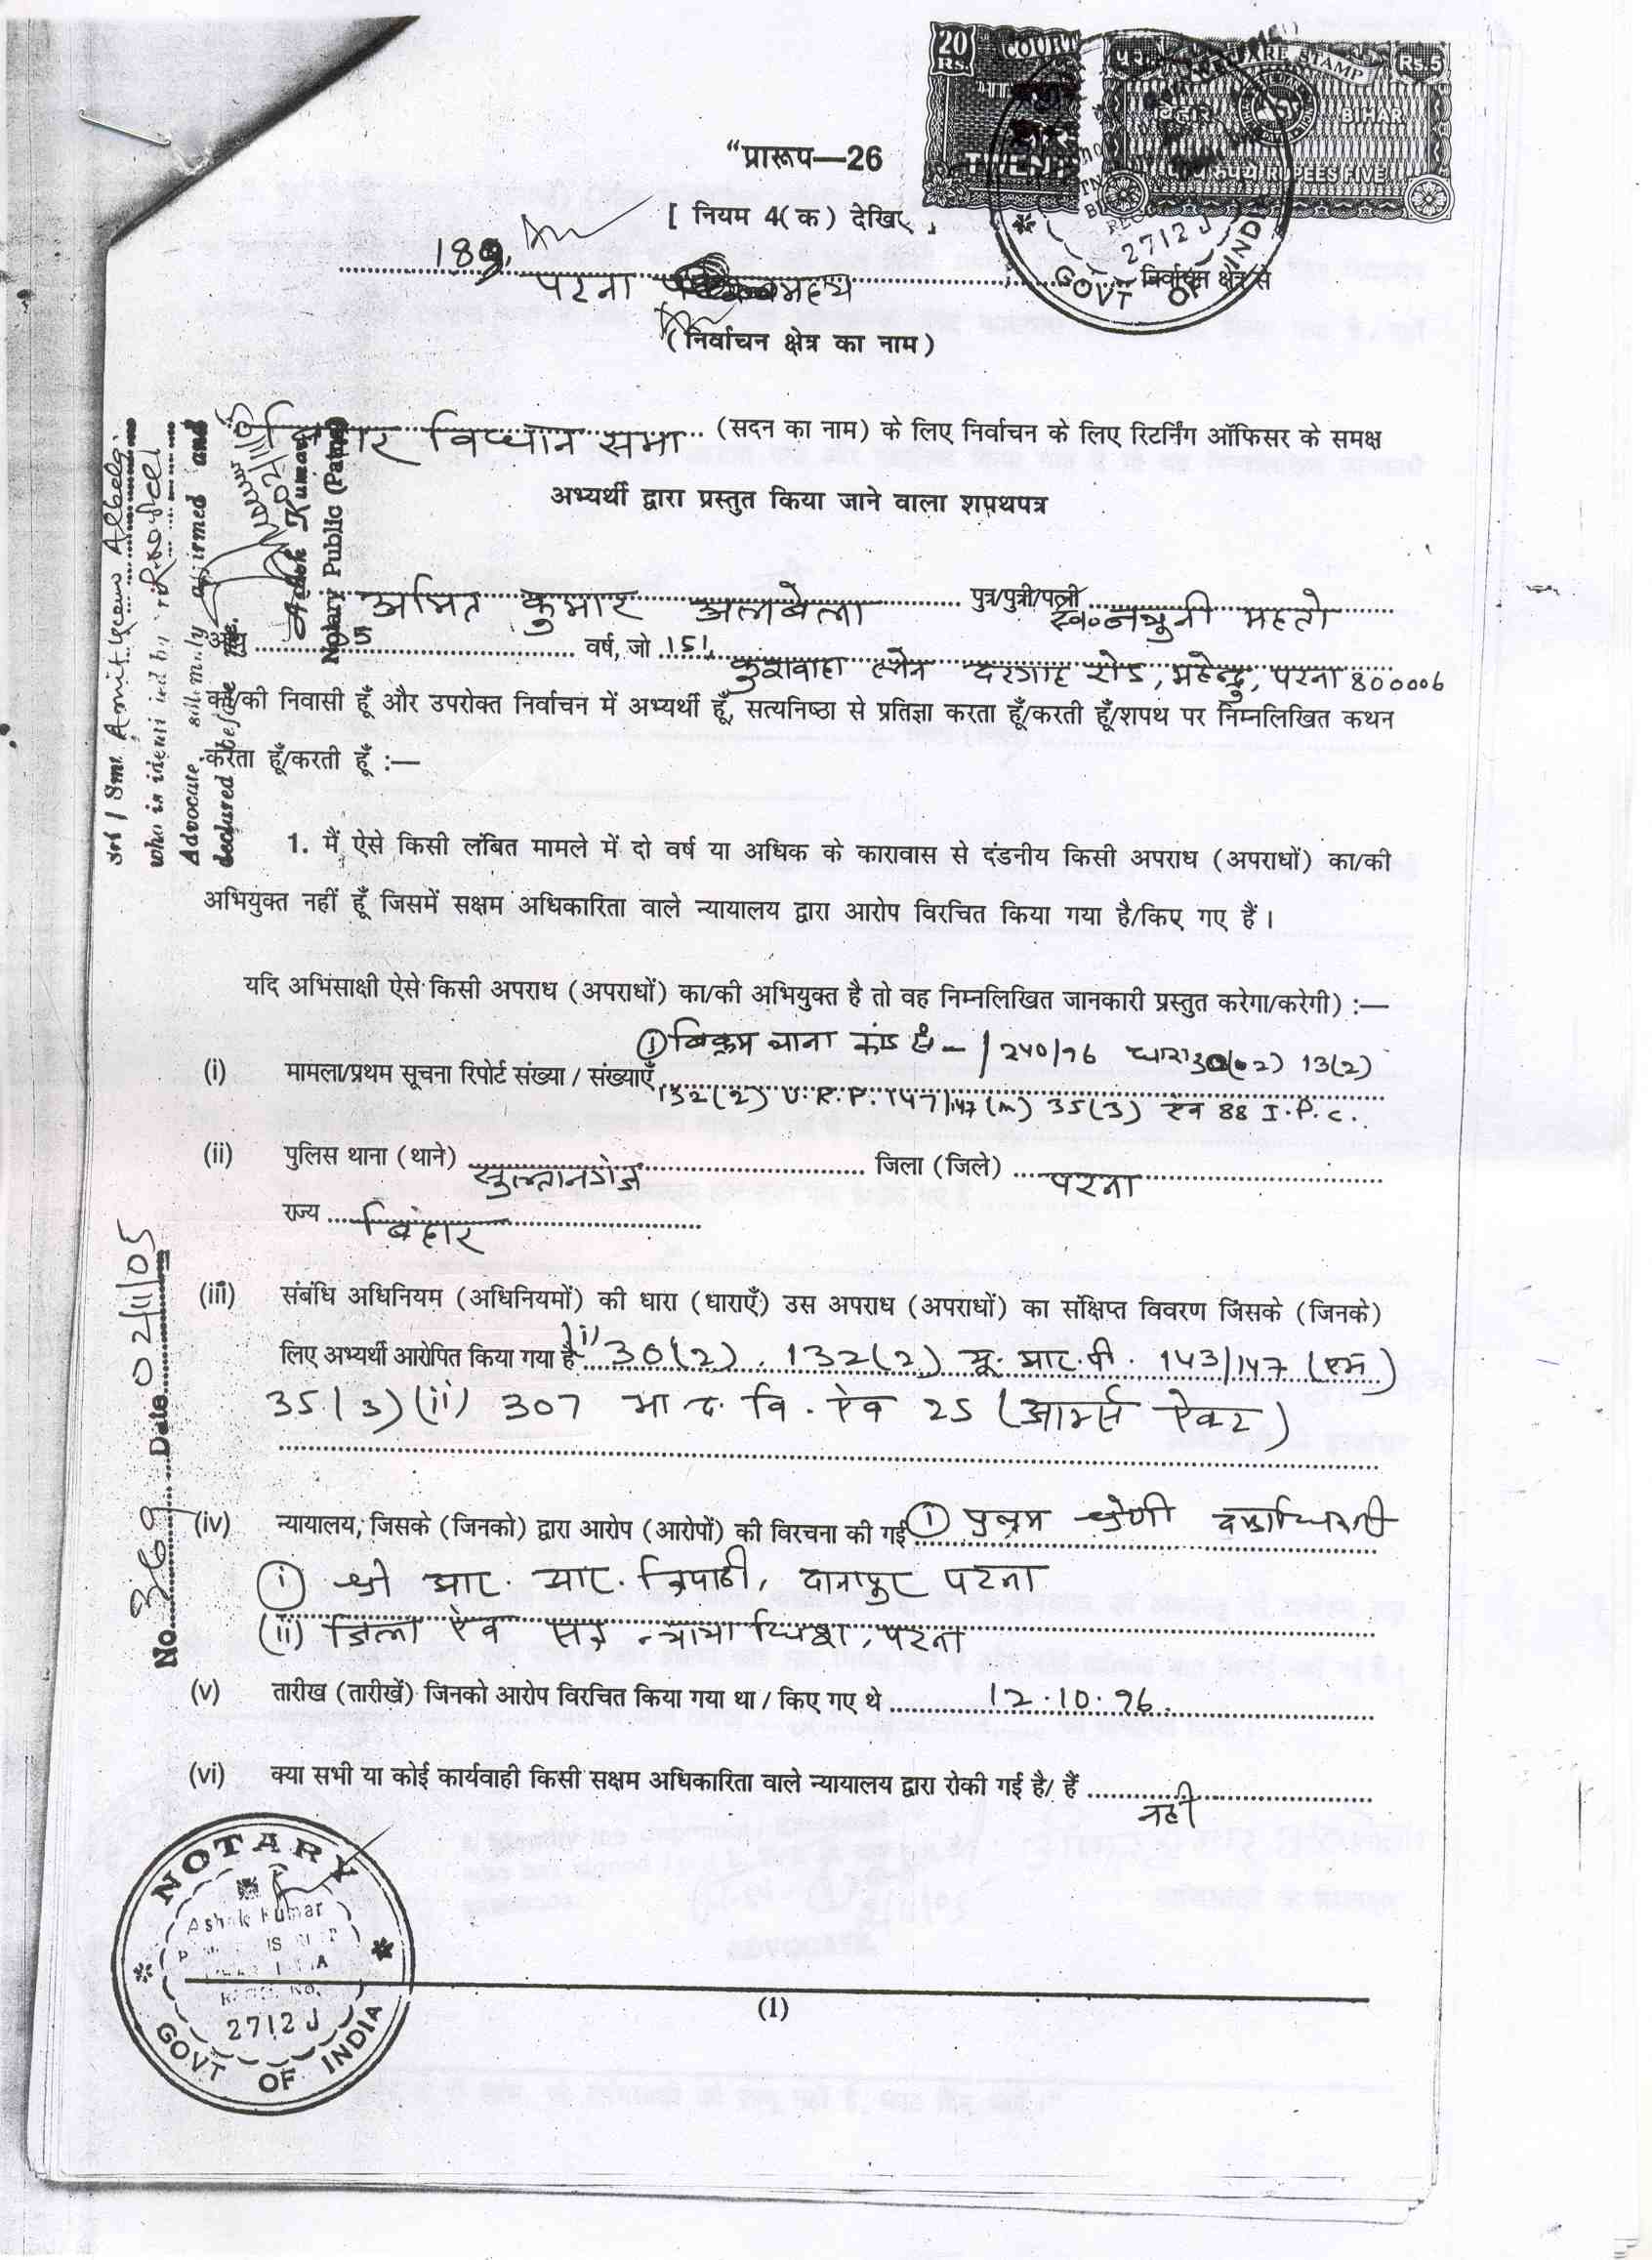 20 Rs.
COURT
WELFARE STAMP
Rs.5
बिहार
BIHAR
RUPEES FIVE
2712J
GOVT OF INDIA
“प्रारूप—26
[ नियम 4(क) देखिए
पटना मध्य निर्वाचन क्षेत्र से
(निर्वाचन क्षेत्र का नाम)
बिहार विधान सभा (सदन का नाम) के लिए निर्वाचन के लिए रिटर्निंग ऑफिसर के समक्ष
अभ्यर्थी द्वारा प्रस्तुत किया जाने वाला शपथपत्र
अमित कुमार अलबेला पुत्र/पुत्री/पत्नी स्व० नथुनी महतो
आयु वर्ष, जो 151, कुशवाहा लेन दरगाह रोड, महेन्द्रु, पटना 800006
का/की निवासी हूँ और उपरोक्त निर्वाचन में अभ्यर्थी हूँ, सत्यनिष्ठा से प्रतिज्ञा करता हूँ/करती हूँ/शपथ पर निम्नलिखित कथन
करता हूँ/करती हूँ :—
1. मैं ऐसे किसी लंबित मामले में दो वर्ष या अधिक के कारावास से दंडनीय किसी अपराध (अपराधों) का/की
अभियुक्त नहीं हूँ जिसमें सक्षम अधिकारिता वाले न्यायालय द्वारा आरोप विरचित किया गया है/किए गए हैं।
यदि अभिसाक्षी ऐसे किसी अपराध (अपराधों) का/की अभियुक्त है तो वह निम्नलिखित जानकारी प्रस्तुत करेगा/करेगी) :—
① विक्रम थाना कांड सं - 240/96 धारा 13(2)
(i) मामला/प्रथम सूचना रिपोर्ट संख्या / संख्याएँ
132(2) U.R.P. 147/147(m) 35(3) एव 88 I.P.C.
(ii) पुलिस थाना (थाने) सुल्तानगंज जिला (जिले) पटना
राज्य बिहार
(iii) संबंधि अधिनियम (अधिनियमों) की धारा (धाराएँ) उस अपराध (अपराधों) का संक्षिप्त विवरण जिसके (जिनके)
लिए अभ्यर्थी आरोपित किया गया है (i) 30(2), 132(2) यू. आर. पी. 143/147 (एम)
35(3) (ii) 307 भा द. वि. ऐव 25 (आर्म्स ऐक्ट)
(iv) न्यायालय, जिसके (जिनको) द्वारा आरोप (आरोपों) की विरचना की गई ① प्रथम श्रेणी दण्डाधिकारी
① श्री आर. आर. त्रिपाठी, दानापुर पटना
(ii) जिला ऐव सत्र न्यायाधिश, पटना
(v) तारीख (तारीखें) जिनको आरोप विरचित किया गया था / किए गए थे 12.10.96.
(vi) क्या सभी या कोई कार्यवाही किसी सक्षम अधिकारिता वाले न्यायालय द्वारा रोकी गई है/ हैं नही
(1)
Sri / Smt Amit Kumar Albela
who is identified by
Advocate solemnly affirmed and
declared before me.
Ashok Kumar
Notary Public (Patna)
No. Date 02/11/05
NOTARY
Ashok Kumar
2712J
GOVT OF INDIA